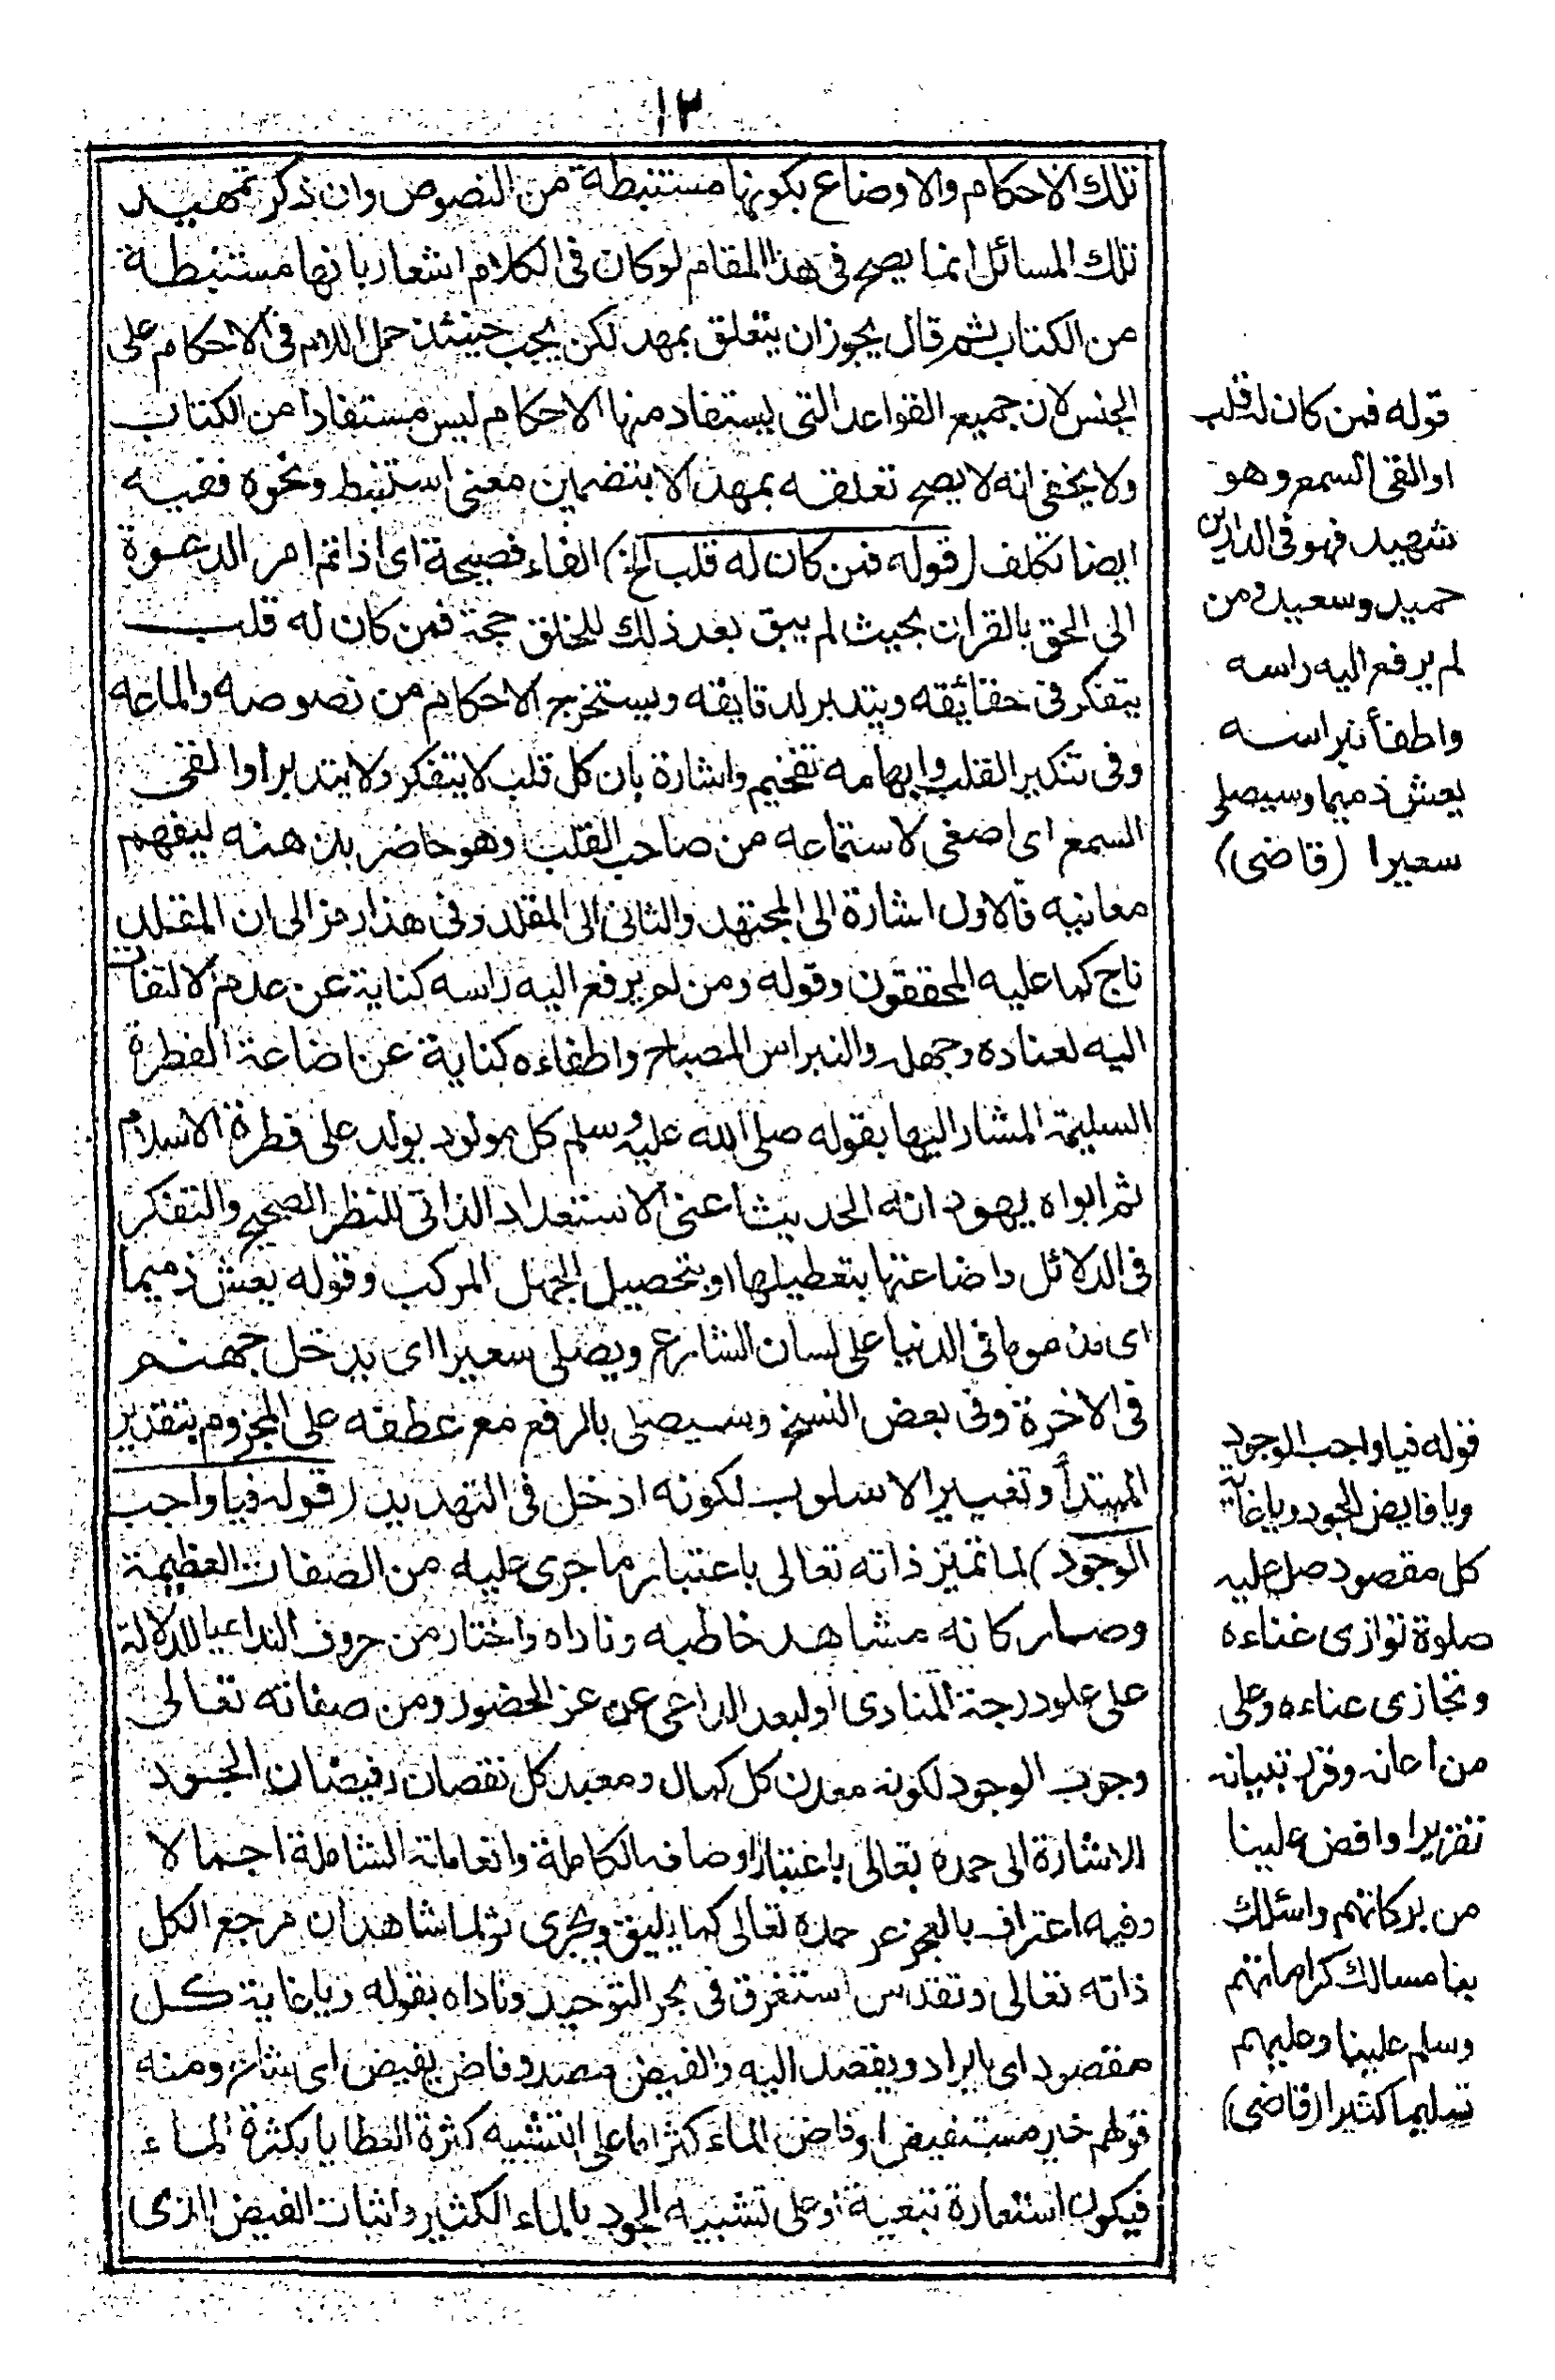 ١٣
تلك الاحكام والاوضاع بكونها مستنبطة من النصوص وان ذكر تمهيد
تلك المسائل انما يصح فى هذا المقام لو كان فى الكلام اشعار بانها مستنبطة
من الكتاب ثم قال يجوز ان يتعلق بمهد لكن يجب حينئذ حمل اللام فى الاحكام على
الجنس لان جميع القواعد التى يستفاد منها الاحكام ليس مستفادا من الكتاب
ولا يخفى انه لا يصح تعلقه بمهد الا بتضمين معنى استنبط ونحوه ففيه
ايضا تكلف (قوله فمن كان له قلب الخ) الفاء فصيحة اى اذا تم امر الدعوة
الى الحق بالقران بحيث لم يبق بعد ذلك للخلق حجة فمن كان له قلب
يتفكر فى حقائقه ويتدبر لدقايقه ويستخرج الاحكام من نصوصه والماعه
وفى تنكير القلب وابهامه تفخيم واشارة بان كل قلب لا يتفكر ولا يتدبر او القى
السمع اى اصغى لاستماعه من صاحب القلب وهو حاضر بذهنه ليفهم
معانيه فالاول اشارة الى المجتهد والثانى الى المقلد وفى هذا رمز الى ان المقلد
ناج كما عليه المحققون وقوله ومن لم يرفع اليه راسه كناية عن عدم الالتفات
اليه لعناده وجهله والنبراس المصباح واطفاءه كناية عن اضاعة الفطرة
السليمة المشار اليها بقوله صلى الله عليه وسلم كل مولود يولد على فطرة الاسلام
ثم ابواه يهودانه الحديث اعنى الاستعداد الذاتى للنظر الصحيح والتفكر
فى الدلائل واضاعتها بتعطيلها او بتحصيل الجهل المركب وقوله يعش ذميما
اى مذموما فى الدنيا على لسان الشارع ويصلى سعيرا اى يدخل جهنم
فى الاخرة وفى بعض النسخ وسيصلى بالرفع مع عطفه على المجزوم بتقدير
المبتدأ وتغيير الاسلوب لكونه ادخل فى التهديد (قوله فيا واجب
الوجود) لما تميز ذاته تعالى باعتبار ما جرى عليه من الصفات العظيمة
وصار كانه مشاهد خاطبه وناداه واختار من حروف النداء يا للدلالة
على علو درجة المنادى او لبعد الداعى عن عز الحضور ومن صفاته تعالى
وجوب الوجود لكونه معدن كل كمال ومبعد كل نقصان وفيضان الجود
للاشارة الى حمده تعالى باعتبار اوصافه الكاملة وانعاماته الشاملة اجمالا
وفيه اعتراف بالعجز عن حمده تعالى كما يليق ويحرى ثم لما شاهد ان مرجع الكل
ذاته تعالى وتقدس استغرق فى بحر التوحيد وناداه بقوله ويا غاية كل
مقصود اى ما يراد ويقصد اليه والفيض مصدر فاض يفيض اى شاع ومنه
قولهم خبر مستفيض او فاض الماء كثر اما على التشبيه كثرة العطايا بكثرة الماء
فيكون استعارة تبعية او على تشبيه الجود بالماء الكثير واثبات الفيض الذى
قوله فمن كان له قلب
او القى السمع وهو
شهيد فهو فى الدارين
حميد وسعيد ومن
لم يرفع اليه راسه
واطفأ نبراسه
يعش ذميما وسيصلى
سعيرا (قاضى)
قوله فيا واجب الوجود
ويا فايض الجود ويا غاية
كل مقصود صل عليه
صلوة توازى غناءه
وتجازى عناءه وعلى
من اعانه وقرر تبيانه
تقريرا وافض علينا
من بركاتهم واسلك
بنا مسالك كراماتهم
وسلم علينا وعليهم
تسليما كثيرا (قاضى)